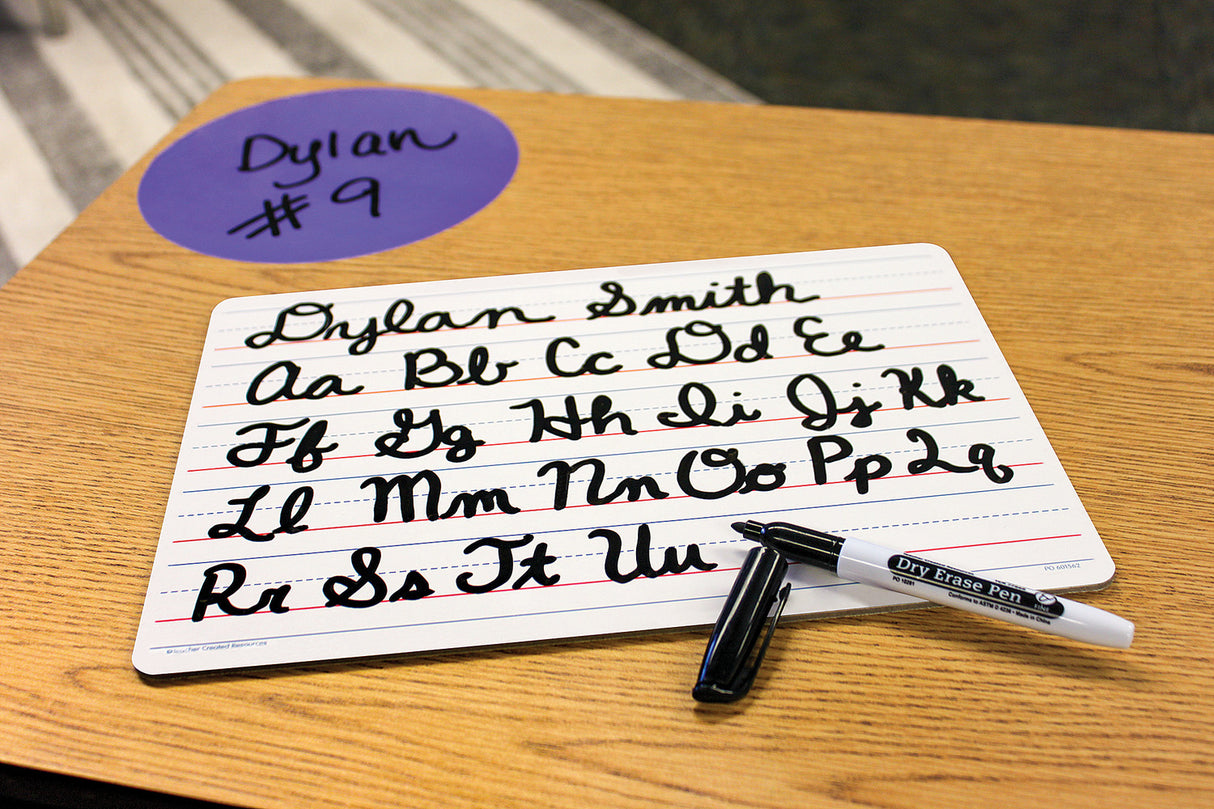 Dylan
# 9
Dylan Smith
Aa Bb Cc Dd Ee
Ff Gg Hh Ii Jj Kk
Ll Mm Nn Oo Pp Qq
Rr Ss Tt Uu
PO 601562
©Teacher Created Resources
Dry Erase Pen
PO 10281
FINE
Conforms to ASTM D 4236 • Made in China